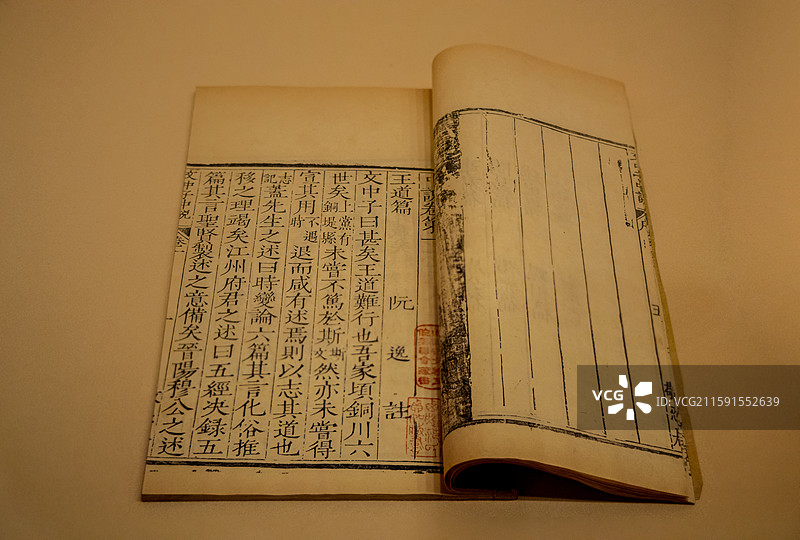 中說卷第一
王道篇 阮逸註
文中子曰甚矣王道難行也吾家頃銅川六
世矣上黨有銅堤縣未嘗不篤於斯斯文然亦未嘗得
宣其用不遇時退而咸有述焉則以志其道也
志記蓋先生之述曰時變論六篇其言化俗推
移之理竭矣江州府君之述曰五經決錄五
篇其言聖賢製述之意備矣晉陽穆公之述
文中子中說 卷一
VCG
VCG.COM
ID:VCG211591552639